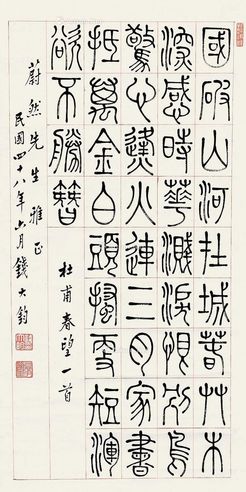 國破山河在城春艸木
深感時華濺淚恨別鳥
驚心烽火連三月家書
抵萬金白頭搔更短渾
欲不勝簪
杜甫春望一首
蔚然先生雅正
民國四十八年六月錢大鈞